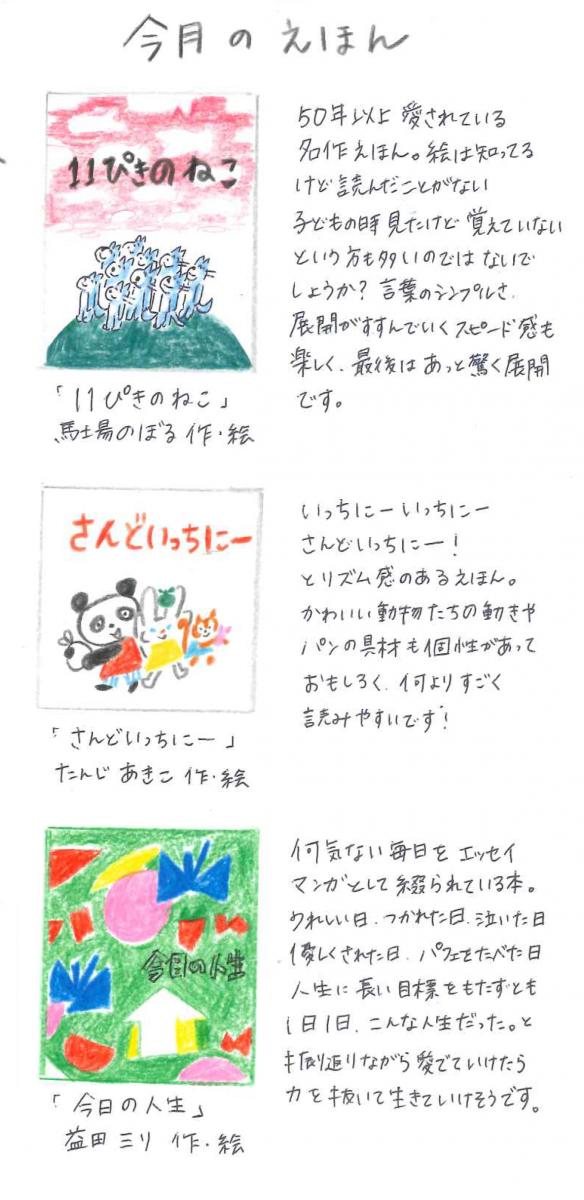 今月のえほん
11ぴきのねこ
「11ぴきのねこ」
馬場のぼる 作・絵
50年以上 愛されている
名作えほん。絵は知ってる
けど読んだことがない
子どもの時見たけど 覚えていない
という方も多いのでは ないで
しょうか? 言葉のシンプルさ、
展開がすすんでいくスピード感も
楽しく、最後は あっと驚く展開
です。
さんどいっちにー
「さんどいっちにー」
たんじ あきこ 作・絵
いっちにー いっちにー
さんどいっちにー!
とリズム感のあるえほん。
かわいい動物たちの動きや
パンの具材も個性があって
おもしろく、何よりすごく
読みやすいです!
今日の人生
「今日の人生」
益田ミリ 作・絵
何気ない毎日を エッセイ
マンガとして綴られている本。
うれしい日、つかれた日、泣いた日
優しくされた日、パフェをたべた日
人生に長い目標をもたずとも
1日1日、こんな人生だった。と
振り返りながら愛でていけたら
力を抜いて生きていけそうです。